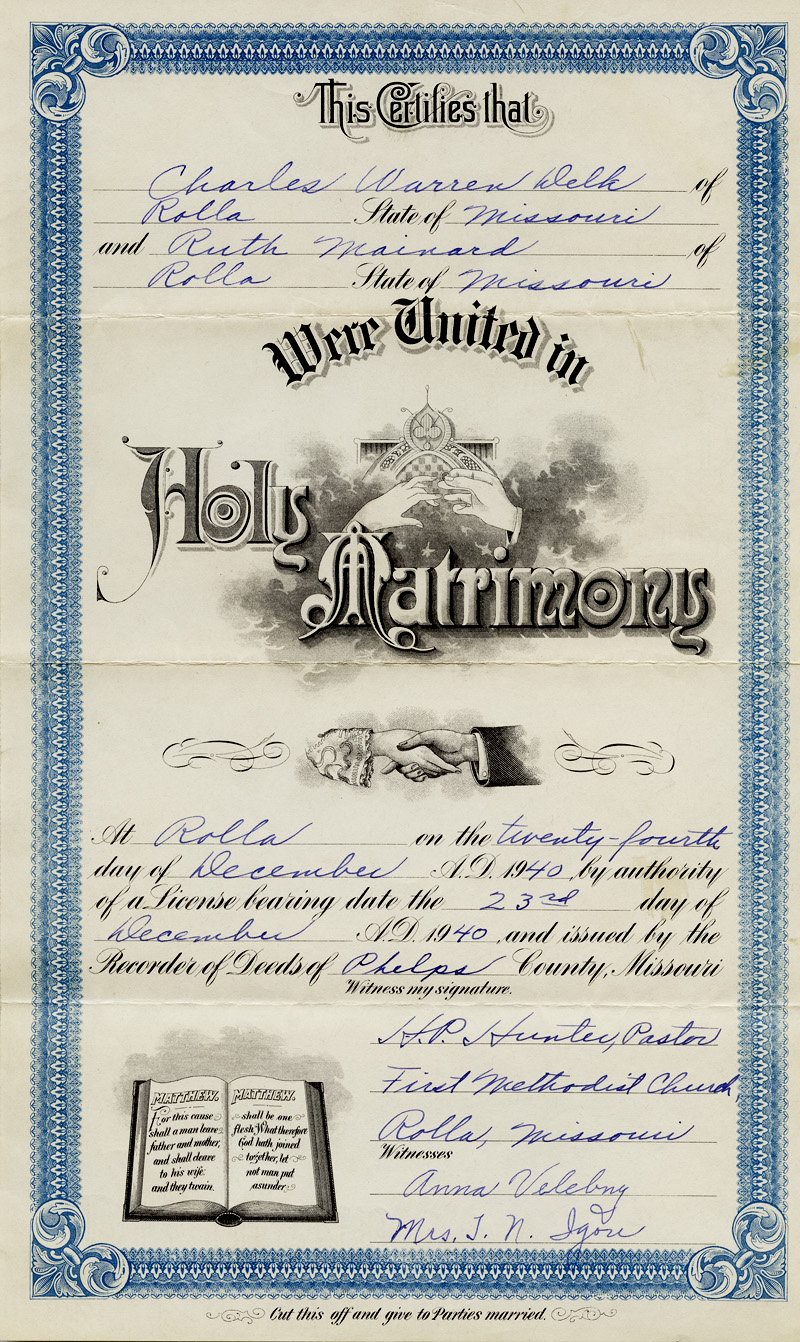 This Certifies that
Charles Warren Delk of
Rolla State of Missouri
and Ruth Mainard of
Rolla State of Missouri
Were United in
Holy
Matrimony
At Rolla on the twenty-fourth
day of December A.D. 1940, by authority
of a License bearing date the 23rd day of
December A.D. 1940, and issued by the
Recorder of Deeds of Phelps County, Missouri
Witness my signature.
H.P. Hunter, Pastor
First Methodist Church
Rolla, Missouri
Witnesses
Anna Velebny
Mrs. T. N. Igou
MATTHEW.
For this cause
shall a man leave
father and mother,
and shall cleave
to his wife:
and they twain.
MATTHEW.
shall be one
flesh, What therefore
God hath joined
together, let
not man put
asunder
Cut this off and give to Parties married.